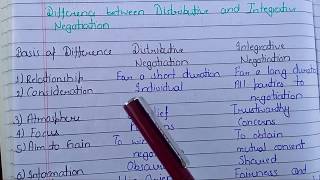 Difference between Distributive and Integrative
Negotiation
Basis of Difference Distributive Integrative
Negotiation Negotiation
1) Relationship For a short duration For a long
2) Consideration Individual All parties to
negotiation
3) Atmosphere Trustworthy
4) Focus Concerns
5) Aim to Gain To obtain
mutual consent
6) Information Shared
Fairness and